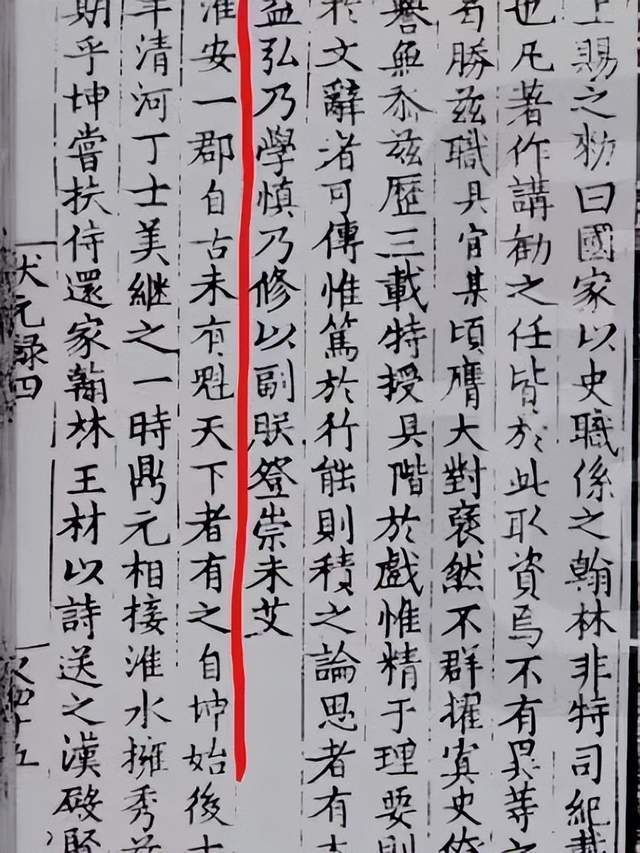 上賜之勑曰國家以史職係之翰林非特司紀載
也凡著作講勸之任皆於此取資焉不有異等之
曷勝兹職具官某頃膺大對褎然不群擢寘史
譽無忝兹歷三載特授具階於戲惟精于理要則
於文辭者可傳惟篤於行能則積之論思者有
益弘乃學慎乃修以副朕登崇未艾
淮安一郡自古未有魁天下者有之自坤始後
年清河丁士美繼之一時鼎元相接淮水擁秀
期乎坤嘗扶侍還家翰林王材以詩送之漢殿
狀元錄四
又四十五